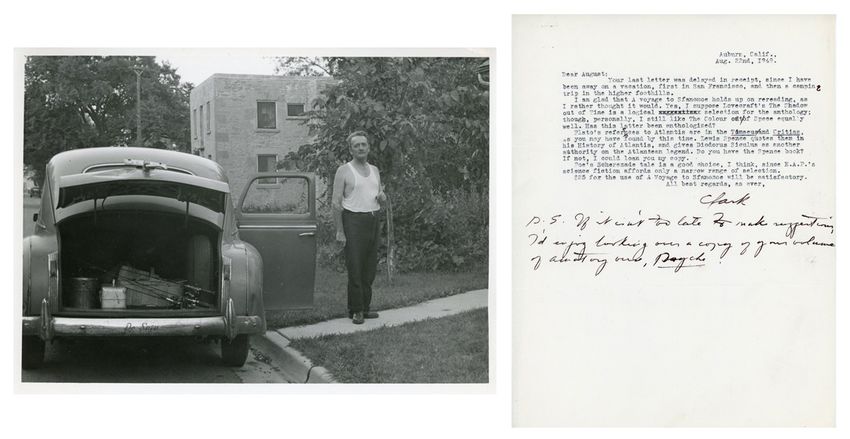 De Soto
Auburn, Calif.,
Aug. 22nd, 1949.
Dear August:
Your last letter was delayed in receipt, since I have
been away on a vacation, first in San Francisco, and then a camping
trip in the higher foothills.
I am glad that A voyage to Sfanomoe holds up on rereading, as
I rather thought it would. Yes, I suppose Lovecraft's The Shadow
out of Time is a logical selection for the anthology;
though, personally, I still like The Colour out of Space equally
well. Has this latter been anthologized?
Plato's references to Atlantis are in the Timaeus and Critias,
as you may have found by this time. Lewis Spence quotes them in
his History of Atlantis, and gives Diodorus Siculus as another
authority on the Atlantean legend. Do you have the Spence book?
If not, I could loan you my copy.
Poe's Scherenade tale is a good choice, I think, since E.A.P.'s
science fiction affords only a narrow range of selection.
$25 for the use of A Voyage to Sfanomoe will be satisfactory.
All best regards, as ever,
Clark
P.S. If it isn't too late to make suggestions,
I'd enjoy looking over a copy of your volume
of amatory odes, Psyche.